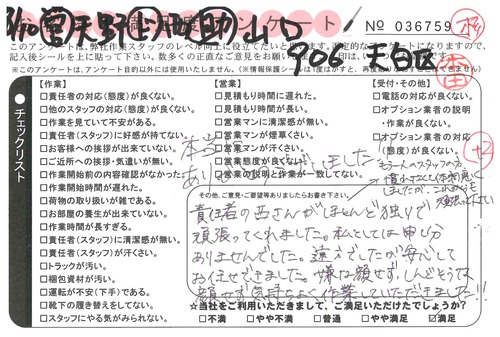 加営天野 上河 助 山口
906 天白区
アンケート
No 036759
杉
このアンケートは、弊社作業スタッフのレベル向上に役立てたいと
記入後シールを上に貼って下さい。数多くの正直なご意見をお願い
※このアンケートは、アンケート目的以外には使用いたしません。(※情報保護シールは1度はがすと、再度貼り
チェックリスト
【作業】
□責任者の対応(態度)が良くない。
□他のスタッフの対応(態度)が良くない。
□作業を見ていて不安がある。
□責任者(スタッフ)に好感が持てない。
□お客様への挨拶が出来ていない。
□ご近所への挨拶・気遣いが無い。
□作業開始前の内容確認がなかった
□作業開始時間が遅れた。
□荷物の取り扱いが雑である。
□お部屋の養生が出来ていない。
□作業時間が長すぎる。
□責任者(スタッフ)に清潔感が無い。
□責任者(スタッフ)が汗くさい。
□トラックが汚い。
□梱包資材が汚い。
□運転が不安(下手)である。
□靴下の履き替えをしてない。
□スタッフにやる気がみられない。
【営業】
□見積もり時間に遅れた。
□見積もり時間が長い。
□営業マンに清潔感が無い。
□営業マンが煙草くさい。
□営業マンが汗くさい。
□営業態度が良くない。
□営業の説明と作業が一致してない。
【受付・その他】
□電話の対応が良くない。
□オプション業者の説明
・作業が良くない。
□オプション業者の対応
(態度)が良くない。
+2
本当に
ありがとうございました!
もう一人のスタッフの方
その他、ご意見・ご要望等ありましたらお書き下さい
責任者の西さんがほとんど独りで
頑張ってくれました。私としては申し分
ありませんでした。遠方でしたが安心して
おまかせできました。嫌な顔せず、しんどそうな
顔せず気持ちよく作業していただきました!!
☆当社をご利用いただきまして、ご満足いただけたでしょうか?
□不満 □やや不満 □普通 □やや満足 ☑満足